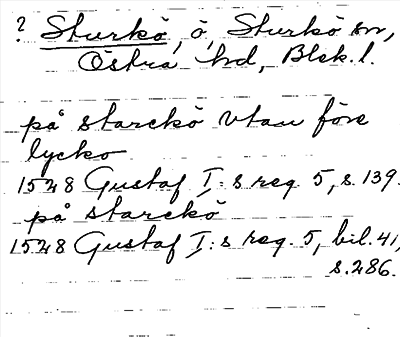 ? Sturkö, ö, Sturkö sn,
Östra hd, Blek. l.
på starckö vtan före
lycko
1528 Gustaf I:s reg 5, s. 139.
på starckö
1528 Gustaf I:s reg. 5, bil. 41,
s. 286.